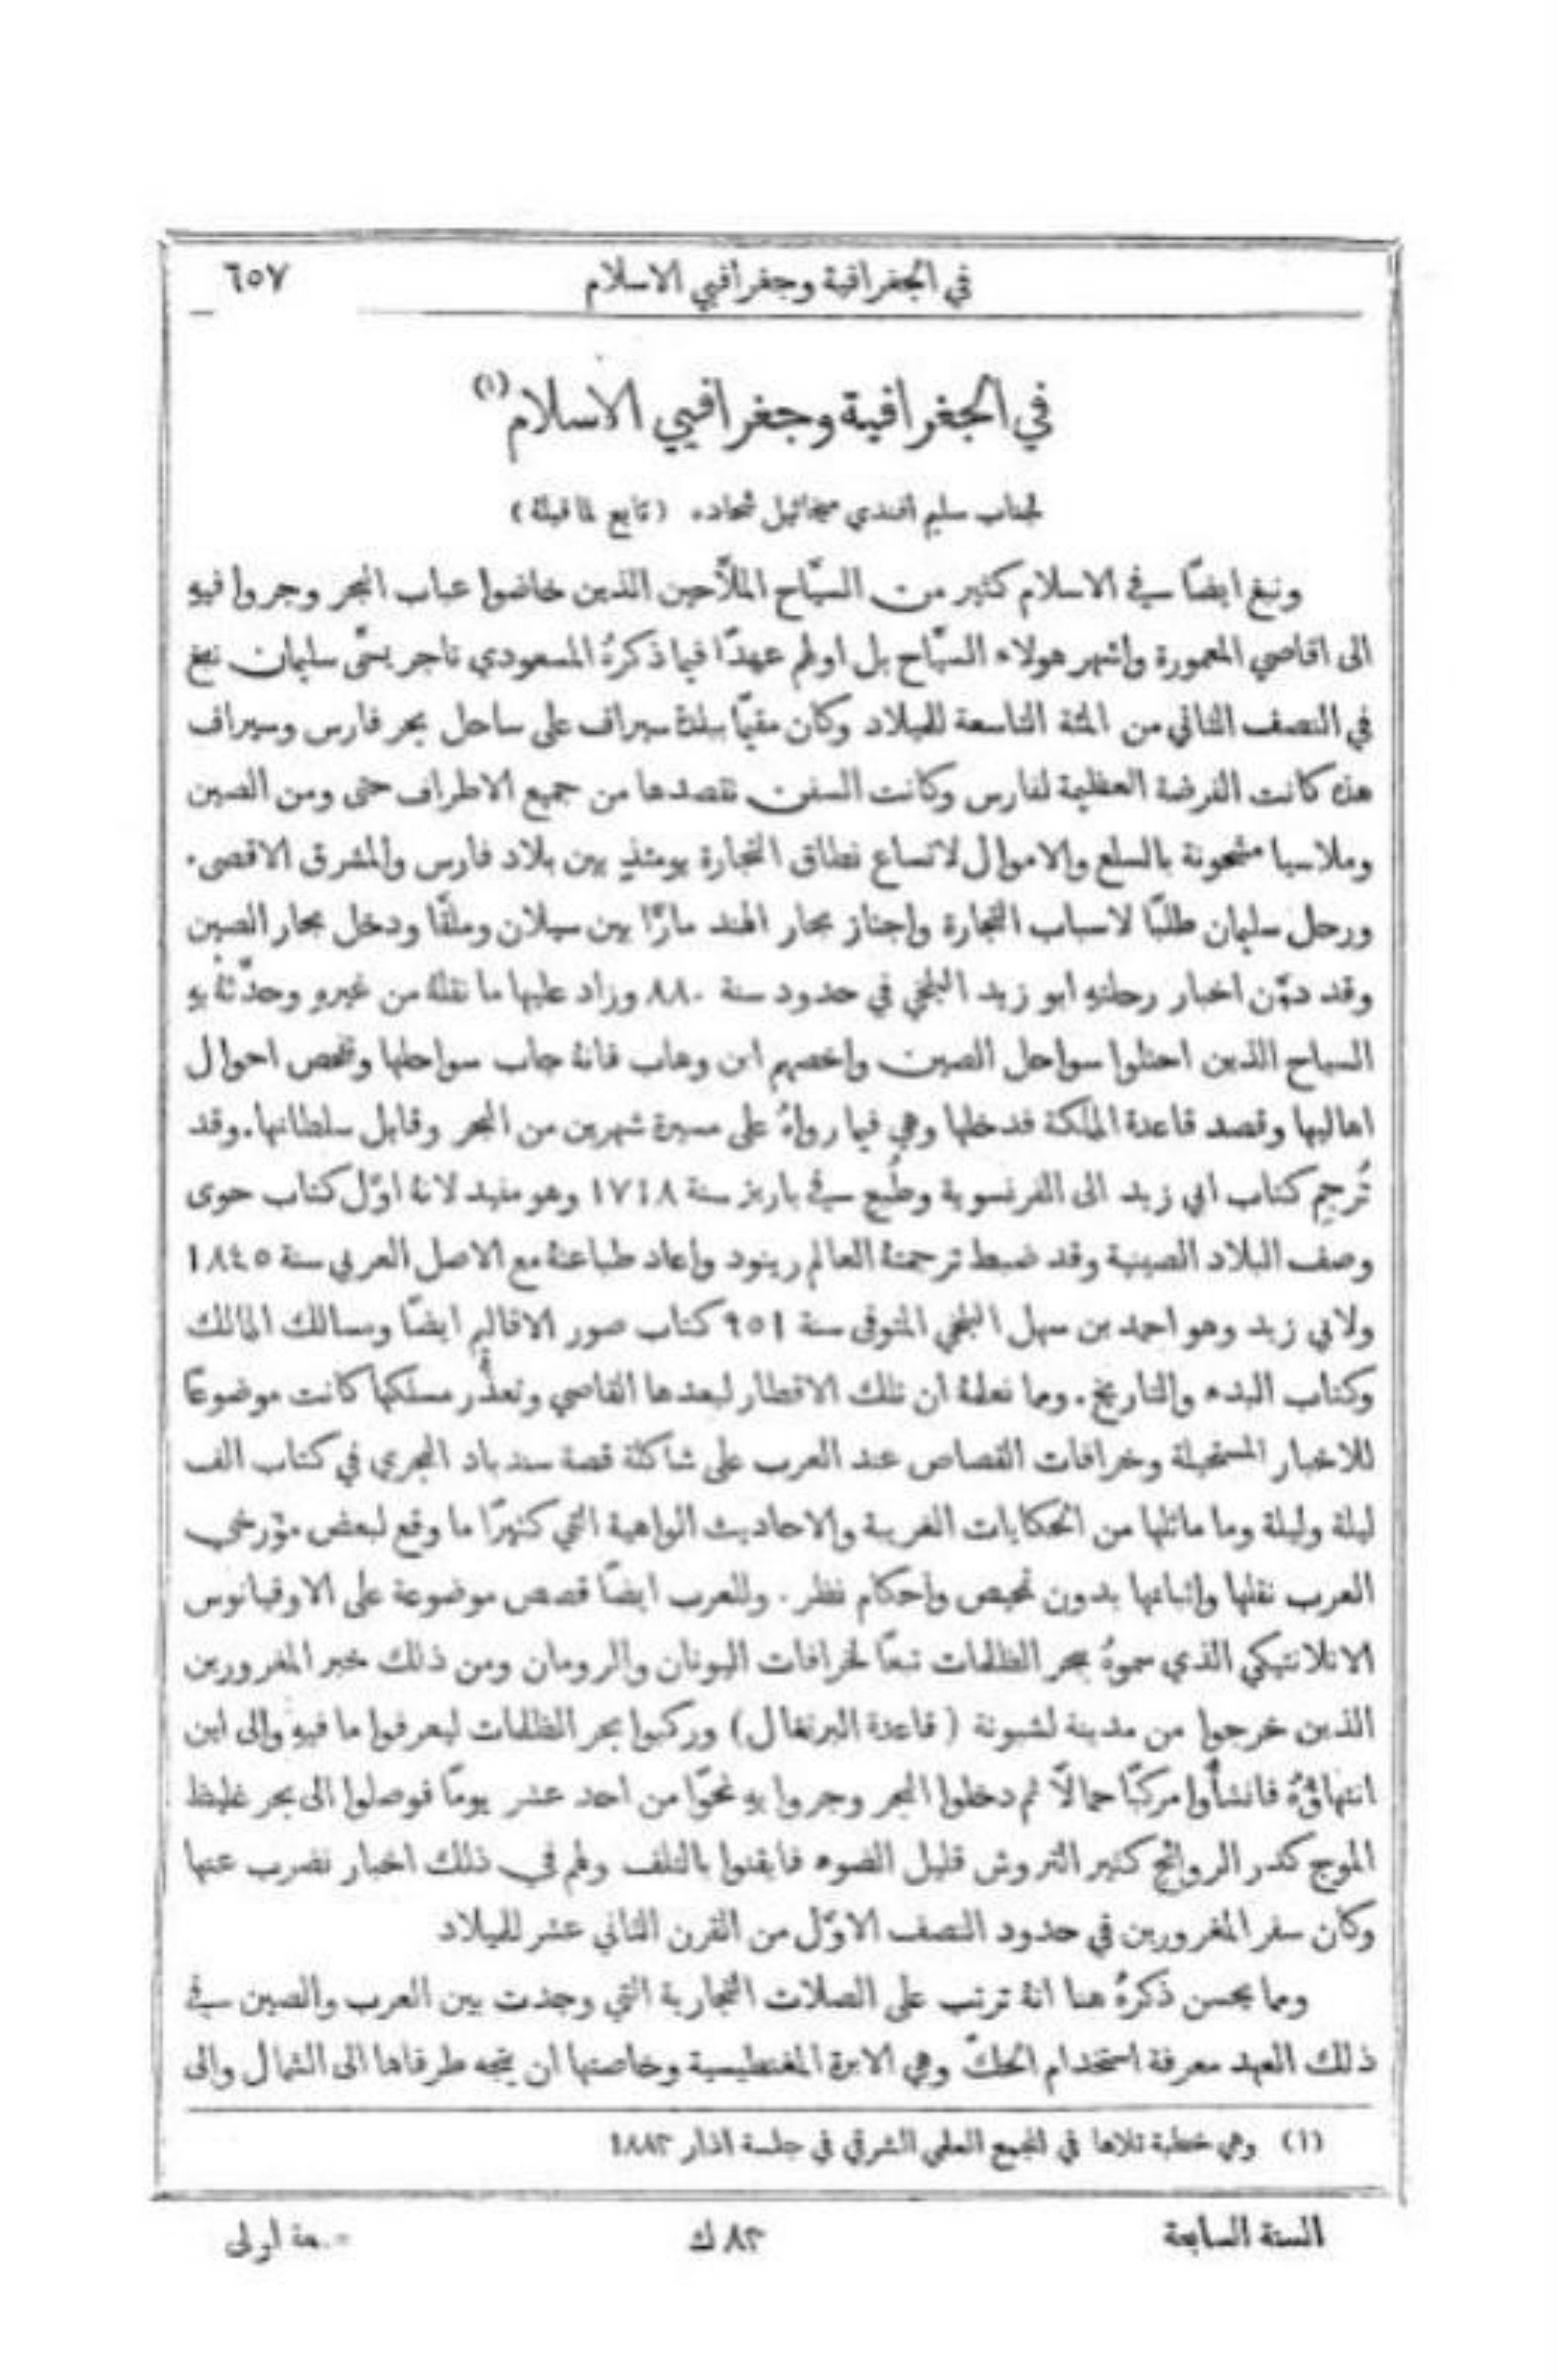 في الجغرافية وجغرافيي الاسلام ٦٥٧
في الجغرافية وجغرافيي الاسلام (١)
لجناب سليم افندي ميخائيل شحاده (تابع لما قبلهُ)
ونبغ ايضًا في الاسلام كثير من السيّاح الملّاحين الذين خاضوا عباب البحر وجروا فيهِ
الى اقاصي المعمورة واشهر هولاء السيّاح بل اولهم عهدًا فيما ذكرهُ المسعودي تاجر يسمَّى سليمان نبغ
في النصف الثاني من المئة التاسعة للميلاد وكان مقيمًا ببلدة سيراف على ساحل بحر فارس وسيراف
هذه كانت الفرضة العظيمة لفارس وكانت السفن تقصدها من جميع الاطراف حتى ومن الصين
وملاسيا مشحونة بالسلع والاموال لاتساع نطاق التجارة يومئذٍ بين بلاد فارس والمشرق الاقصى.
ورحل سليمان طلبًا لاسباب التجارة واجتاز بحار الهند مارًّا بين سيلان وملقَّا ودخل بحار الصين
وقد دوَّن اخبار رحلتهِ ابو زيد البلخي في حدود سنة ٨٨٠ وزاد عليها ما نقلهُ من غيرهِ وحدَّثهُ بهِ
السياح الذين احتلوا سواحل الصين واخصهم ابن وهاب فانهُ جاب سواحلها وتفحص احوال
اهاليها وقصد قاعدة المملكة فدخلها وهي فيما رواهُ على مسيرة شهرين من البحر وقابل سلطانها. وقد
تُرجم كتاب ابي زيد الى الفرنسوية وطُبع في باريز سنة ١٧١٨ وهو مفيد لانهُ اوّل كتاب حوى
وصف البلاد الصينية وقد ضبط ترجمتهُ العالم رينود واعاد طباعتهُ مع الاصل العربي سنة ١٨٤٥
ولابي زيد وهو احمد بن سهل البلخي المتوفى سنة ٩٥١ كتاب صور الاقاليم ايضًا ومسالك الممالك
وكتاب البدء والتاريخ. ومما نعلمهُ ان تلك الاقطار لبعدها القاصي وتعذُّر مسلكها كانت موضوعًا
للاخبار المستحيلة وخرافات القصاص عند العرب على شاكلة قصة سندباد البحري في كتاب الف
ليلة وليلة وما ماثلها من الحكايات الغريبة والاحاديث الواهية التي كثيرًا ما وقع لبعض مؤرخي
العرب نقلها واثباتها بدون تمحيص واحكام نظر. وللعرب ايضًا قصص موضوعة على الاوقيانوس
الاتلانتيكي الذي سموهُ بحر الظلمات تبعًا لخرافات اليونان والرومان ومن ذلك خبر المغرورين
الذين خرجوا من مدينة لشبونة (قاعدة البرتغال) وركبوا بحر الظلمات ليعرفوا ما فيهِ والى اين
انتهاؤُهُ فانشأُوا مركبًا حمالًا ثم دخلوا البحر وجروا بهِ نحوًا من احد عشر يومًا فوصلوا الى بحر غليظ
الموج كدر الروائح كثير التروش قليل الضوء فايقنوا بالتلف ولهم في ذلك اخبار نضرب عنها
وكان سفر المغرورين في حدود النصف الاوّل من القرن الثاني عشر للميلاد
ومما يحسن ذكرهُ هنا انهُ ترتب على الصلات التجارية التي وجدت بين العرب والصين في
ذلك العهد معرفة استخدام الحكّ وهي الابرة المغنطيسية وخاصتها ان يتجه طرفاها الى الشمال والى
(١) وهي خطبة تلاها في المجمع العلمي الشرقي في جلسة اذار ١٨٨٣
السنة السابعة ٨٣ ك اولى